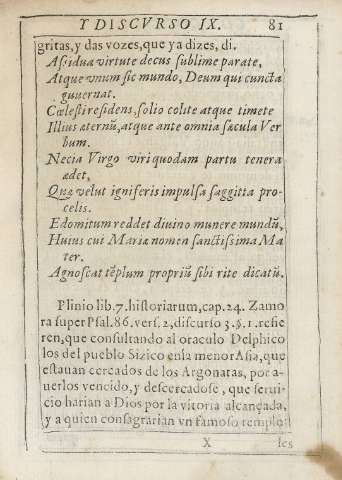 Y DISCVRSO IX. 81
gritas, y das vozes, que ya dizes, di.
Assidua virtute decus sublime parate,
Atque vnum sic mundo, Deum qui cuncta
guuernat.
Cœlesti residens, solio colite atque timete
Illius æternũ, atque ante omnia sæcula Ver
bum.
Necia Virgo viri quodam partu tenera
ædet,
Quæ velut igniferis impulsa saggitta pro-
celis.
Edomitum reddet diuino munere mundũ,
Huius cui Mariæ nomen sanctissima Ma
ter.
Agnoscat tẽplum propriũ sibi rite dicatũ.
Plinio lib. 7. historiarum, cap. 24. Zamo
ra super Psal. 86. vers. 2, discurso 3. §. 1. refie
ren, que consultando al oraculo Delphico
los del pueblo Sizico en la menor Asia, que
estauan cercados de los Argonatas, por a-
uerlos vencido, y descercadose, que serui-
cio harian a Dios por la vitoria alcançada,
y a quien consagrarian vn famoso templo
X les